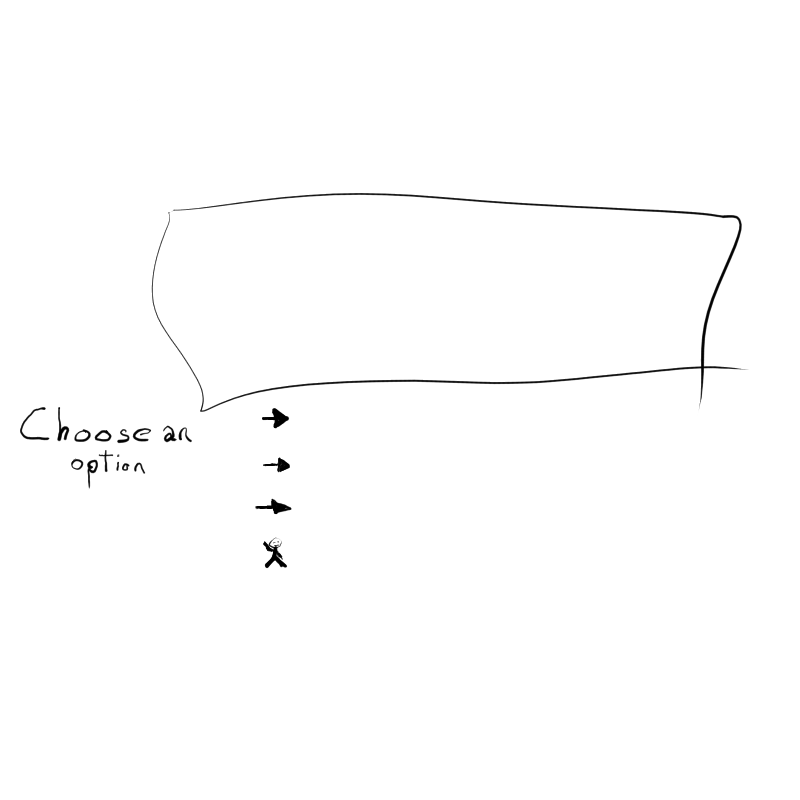 Choose an
option